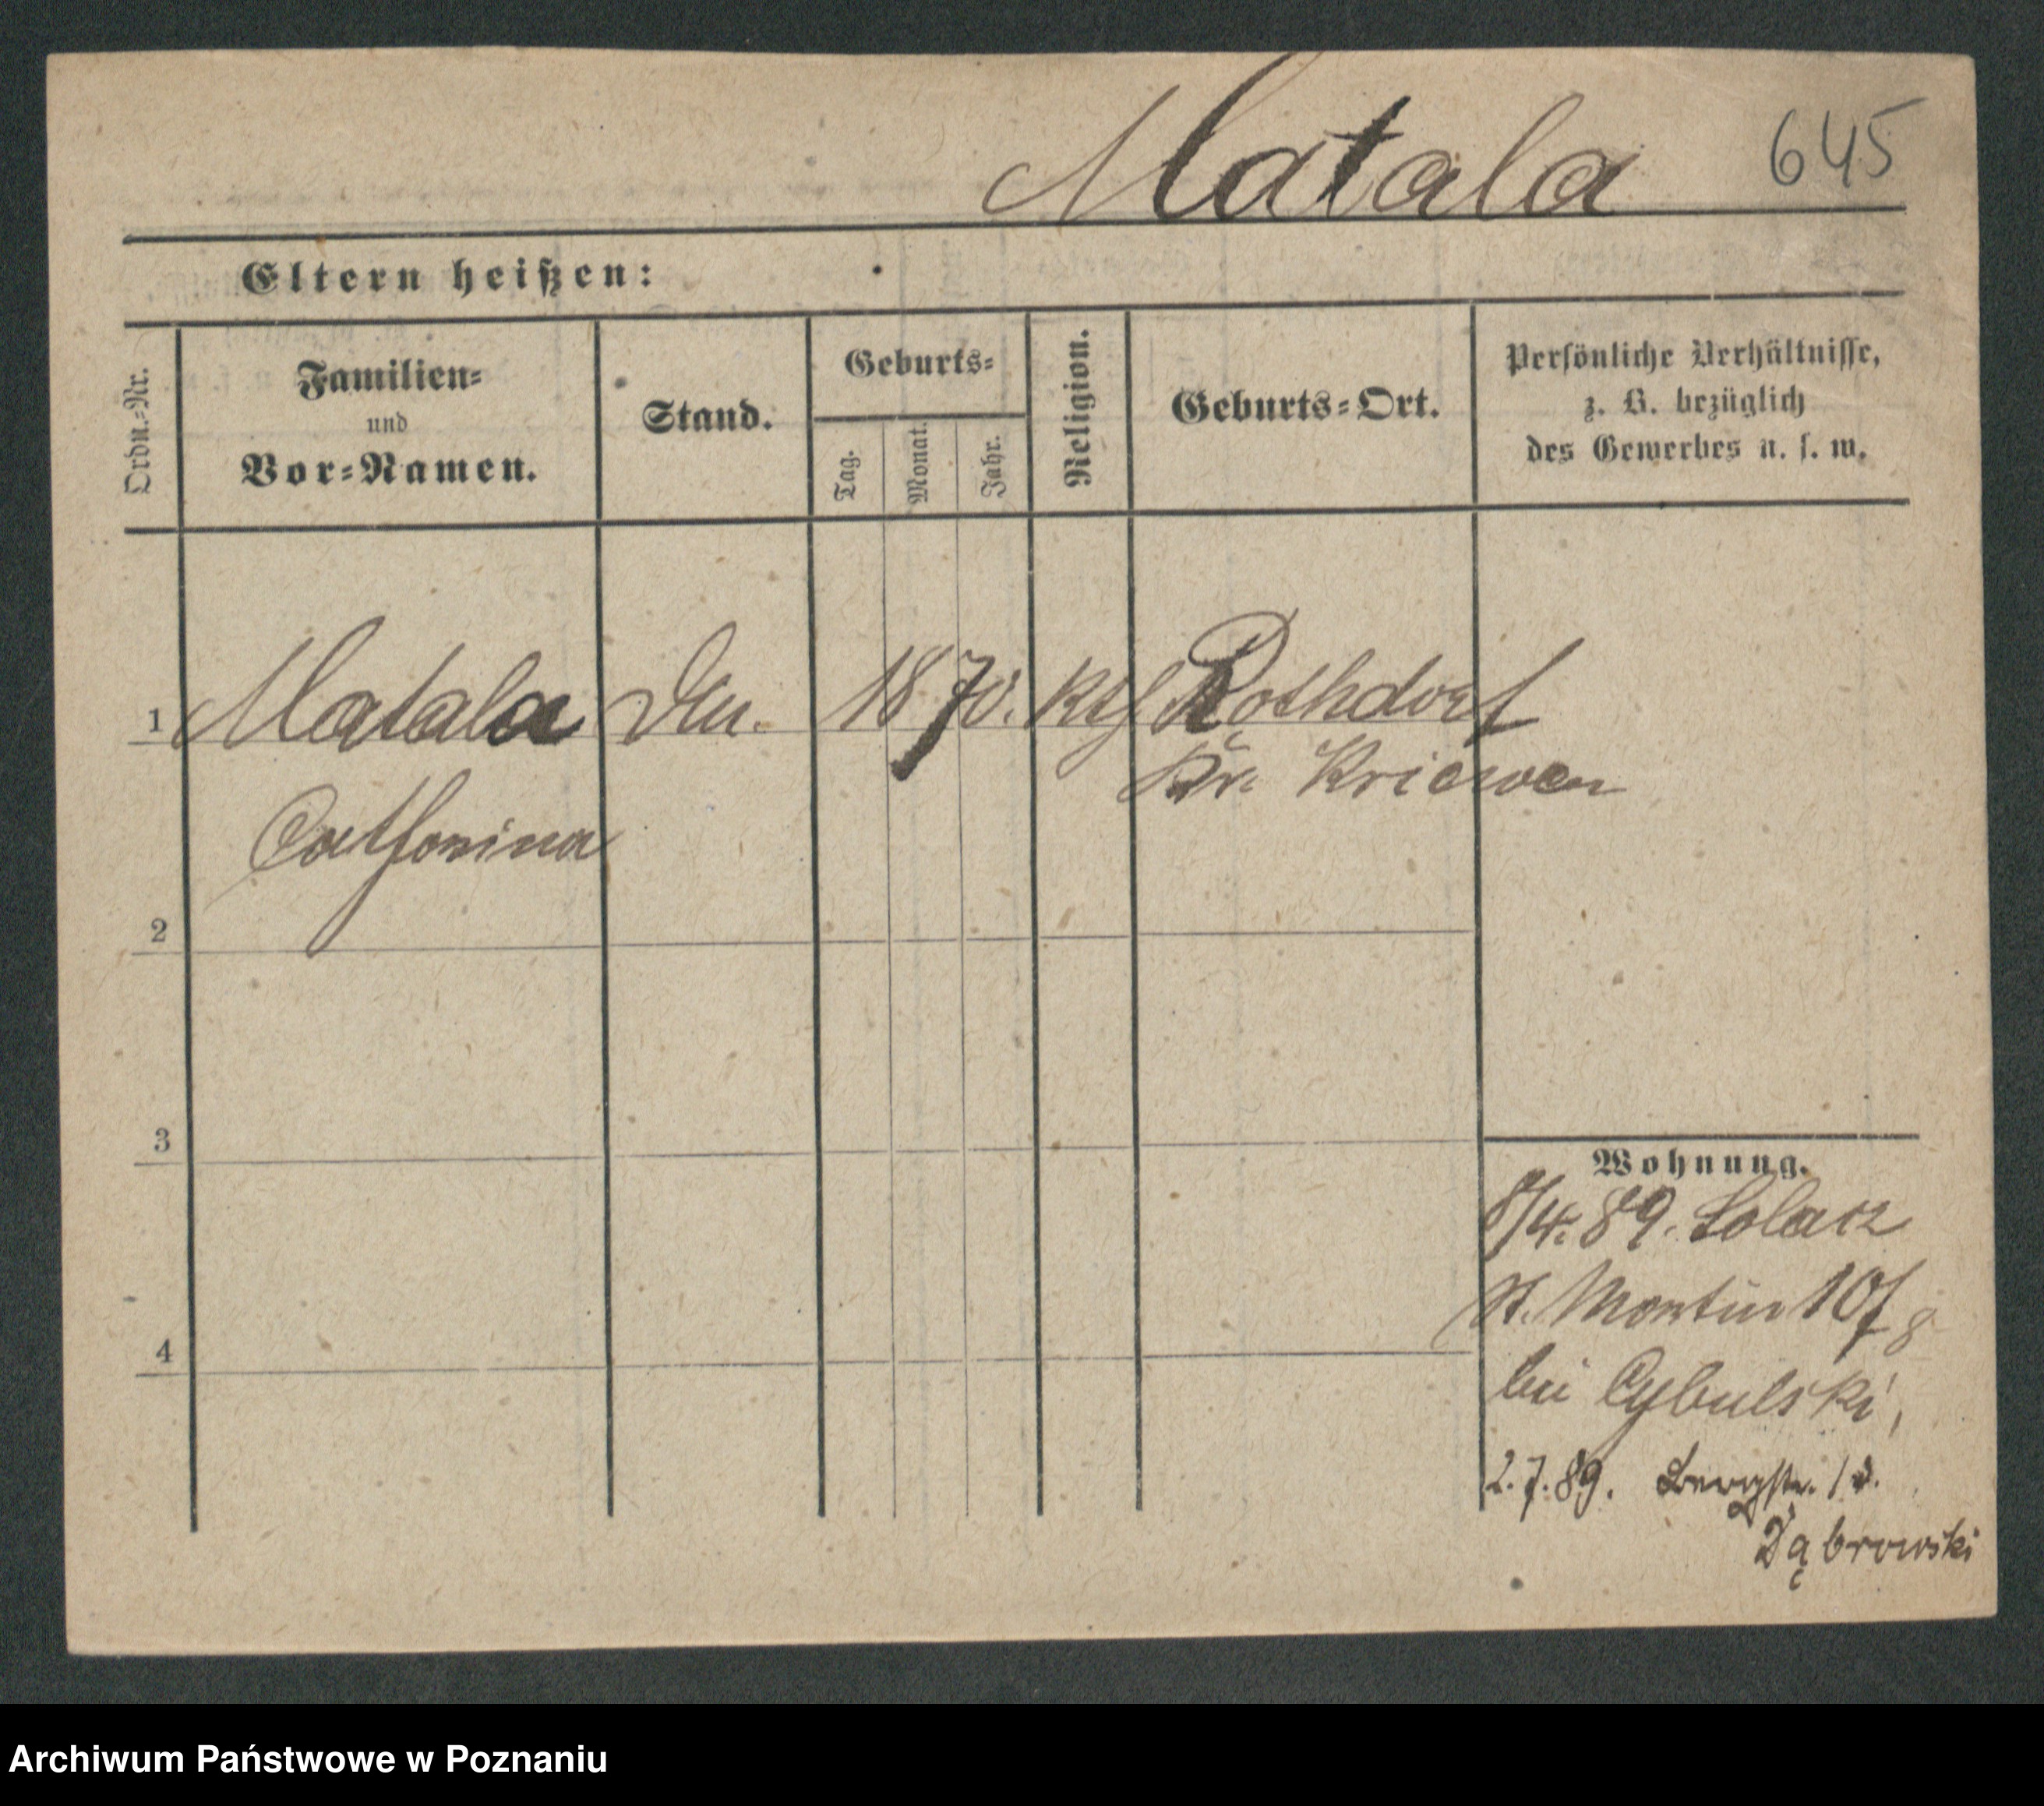 Matala 645
Eltern heißen:
Ordn.-Nr.
Familien-
und
Vor-Namen.
Stand.
Geburts-
Tag.
Monat.
Jahr.
Religion.
Geburts-Ort.
Persönliche Verhältnisse,
z. B. bezüglich
des Gewerbes u. s. w.
1 Matala 1870. Kth Rothdorf
Kr. Kriewen
Catharina
2
3
4
Wohnung.
8/4. 89. Solacz
St. Martin 10/8
bei Cybulski,
2.7.89. Bergstr.
Dąbrowski
Archiwum Państwowe w Poznaniu